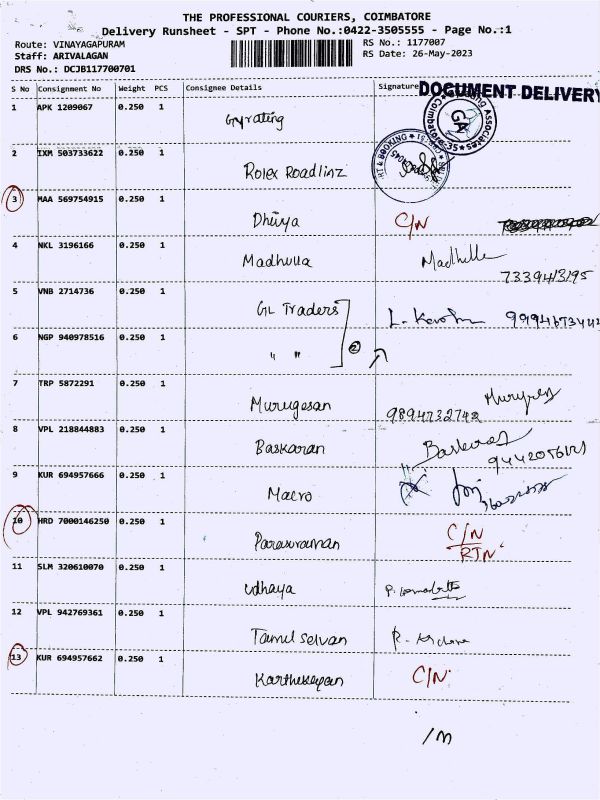 THE PROFESSIONAL COURIERS, COIMBATORE
Delivery Runsheet - SPT - Phone No.:0422-3505555 - Page No.:1
Route: VINAYAGAPURAM RS No.: 1177007
Staff: ARIVALAGAN RS Date: 26-May-2023
DRS No.: DCJB117700701
S No Consignment No Weight PCS Consignee Details Signature
DOCUMENT DELIVERY
1 APK 1209067 0.250 1
Gyrating
Associates
GA
Coimbatore-35
2 IXM 503733622 0.250 1
Rolex Roadlinz
& BOOKING
3 MAA 569754915 0.250 1
Dhivya C/N
4 NKL 3196166 0.250 1
Madhulla Madhulla
7339413195
5 VNB 2714736 0.250 1
GL Traders
6 NGP 940978516 0.250 1
" " 2
7 TRP 5872291 0.250 1
Murugesan 9894732742
8 VPL 218844883 0.250 1
Baskaran
9 KUR 694957666 0.250 1
Macro
10 HRD 7000146250 0.250 1
C/N
RTN
11 SLM 320610070 0.250 1
Udhaya
12 VPL 942769361 0.250 1
Tamil Selvan
13 KUR 694957662 0.250 1
Karthikeyan C/N